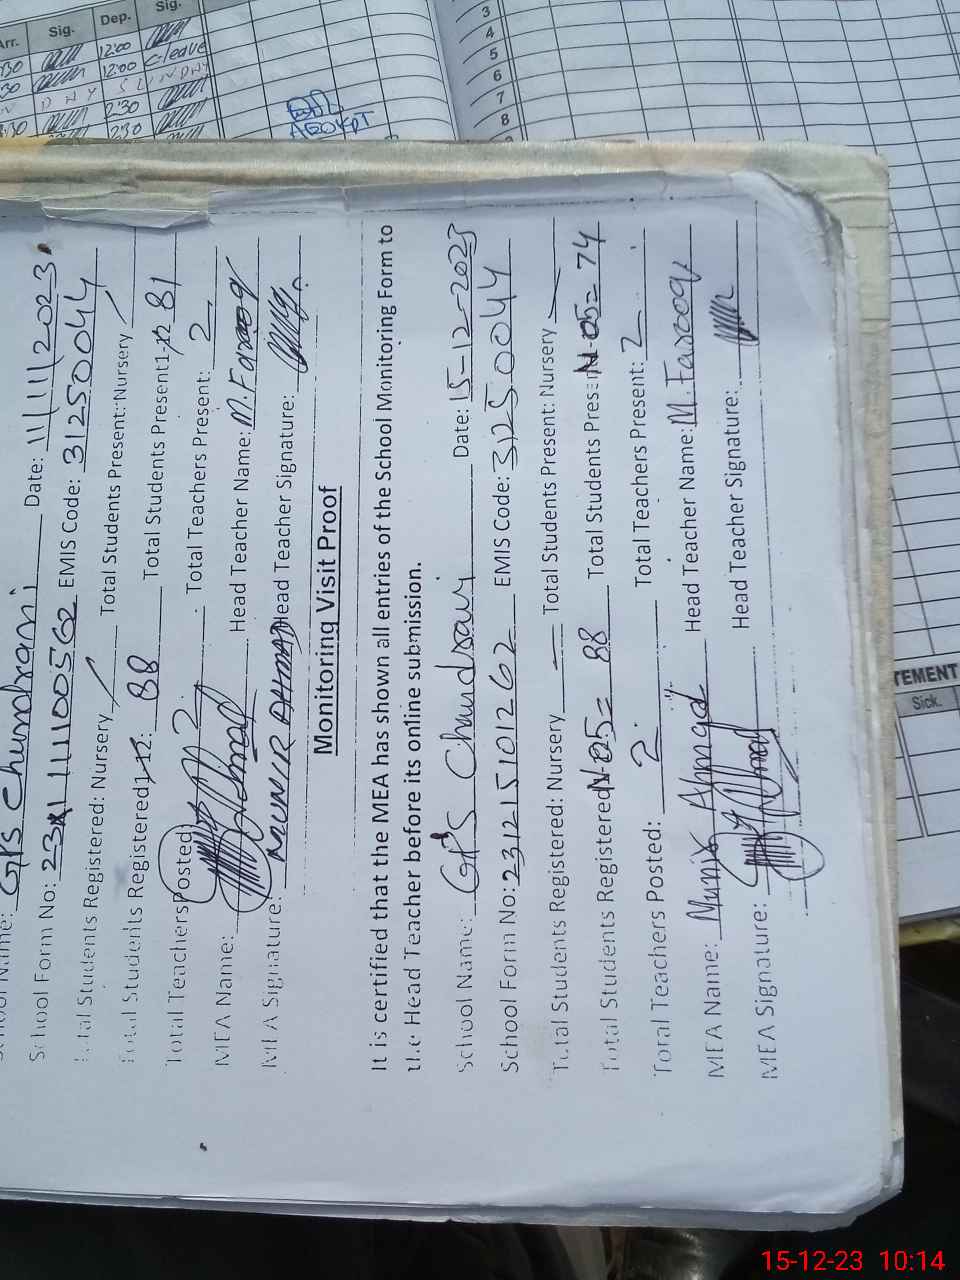 Arr. Sig. Dep. Sig.
12:00
12:00 C-leave
2:30
2:30
3
4
5
6
7
8
School Name: GPS Chundrani Date: 11/11/2023
School Form No: EMIS Code: 31250044
Total Students Registered: Nursery Total Students Present: Nursery
Total Students Registered 88 Total Students Present 81
Total Teachers Posted: 2 Total Teachers Present: 2
MEA Name: Head Teacher Name: M. Farooq
MEA Signature: MUNIR AHMAD Head Teacher Signature:
Monitoring Visit Proof
It is certified that the MEA has shown all entries of the School Monitoring Form to
the Head Teacher before its online submission.
School Name: GPS Date: 15-12-2023
School Form No: 231215101262 EMIS Code: 31250044
Total Students Registered: Nursery — Total Students Present: Nursery —
Total Students Registered N-05= 88 Total Students Present N-05= 74
Total Teachers Posted: 2 Total Teachers Present: 2
MEA Name: Munir Ahmad Head Teacher Name: M. Farooq
MEA Signature: Head Teacher Signature:
TEMENT
Sick.
15-12-23 10:14